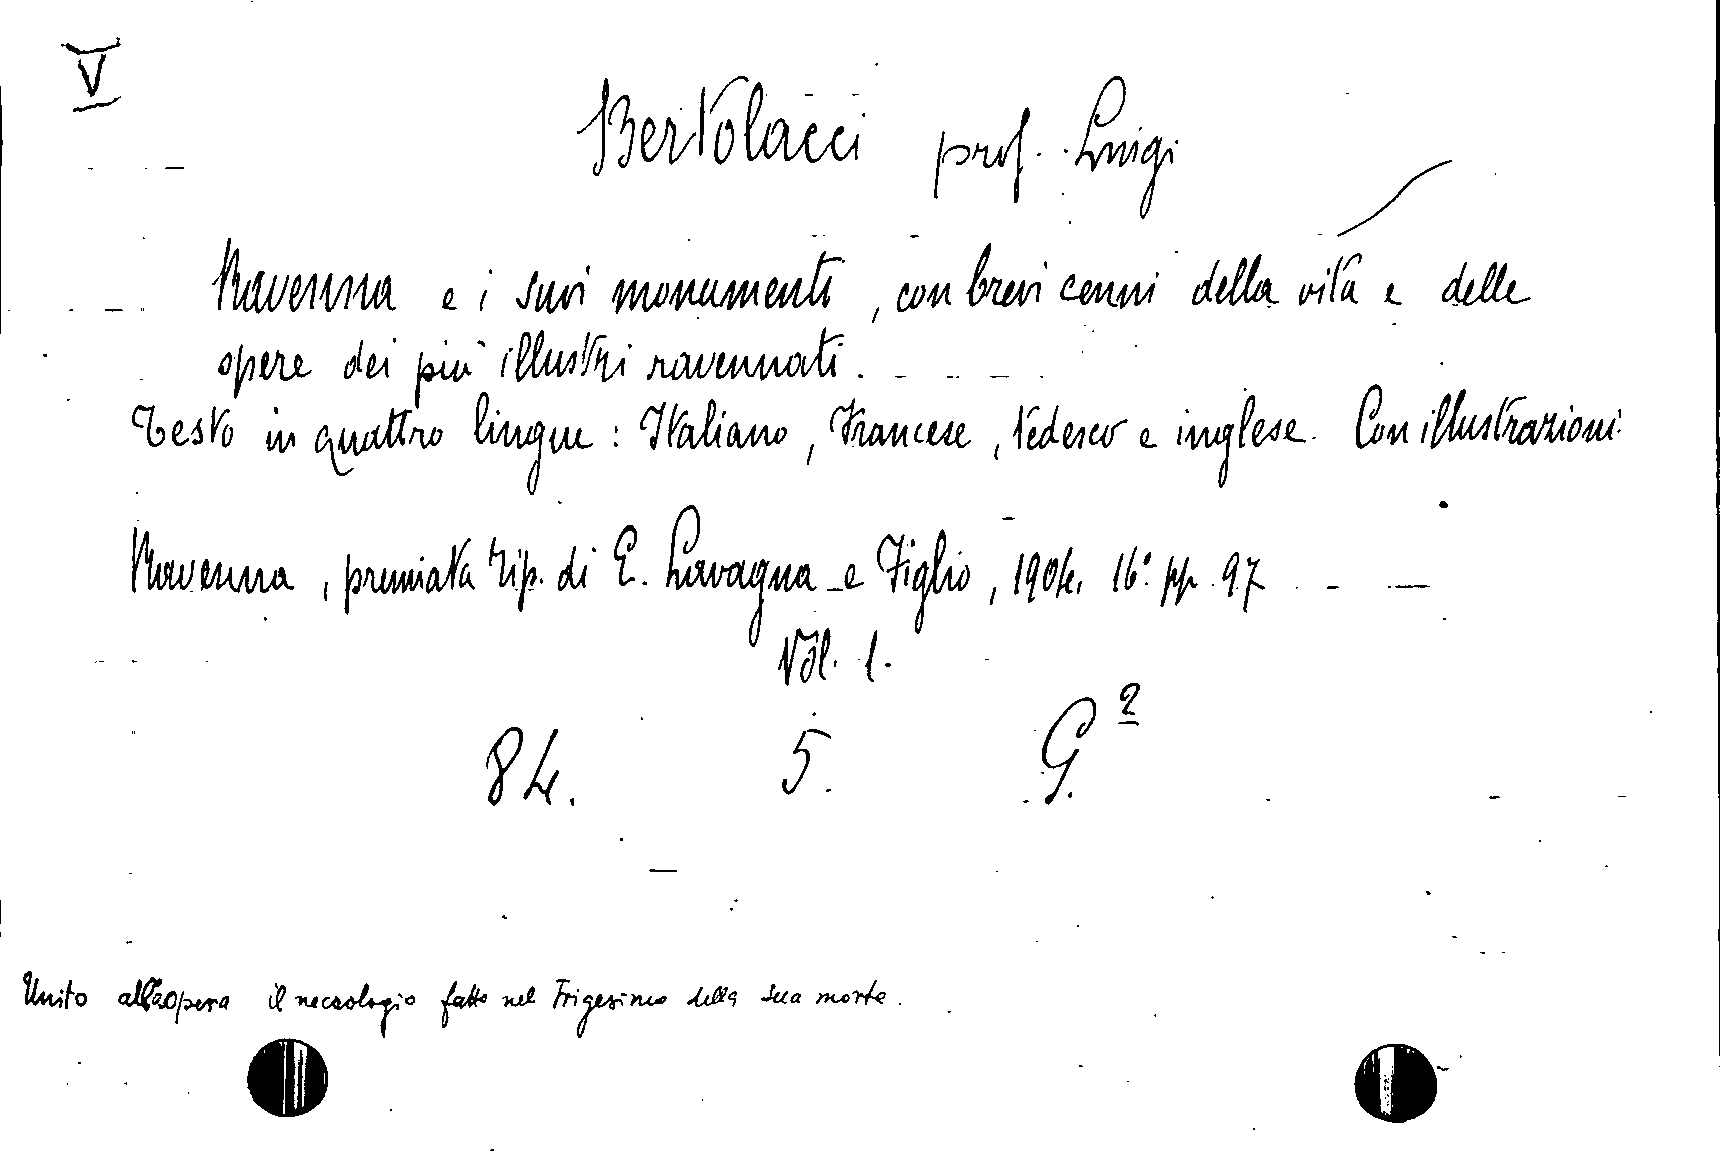 V
Bertolacci prof. Luigi
Ravenna e i suoi monumenti, con brevi cenni della vita e delle
opere dei più illustri ravennati.
Testo in quattro lingue: Italiano, Francese, tedesco e inglese. Con illustrazioni.
Ravenna, premiata tip. di E. Lavagna e Figlio, 1904. 16º pp. 97
Vol. 1.
84. 5. G.2
Unito all'opera il necrologio fatto nel Trigesimo della sua morte.